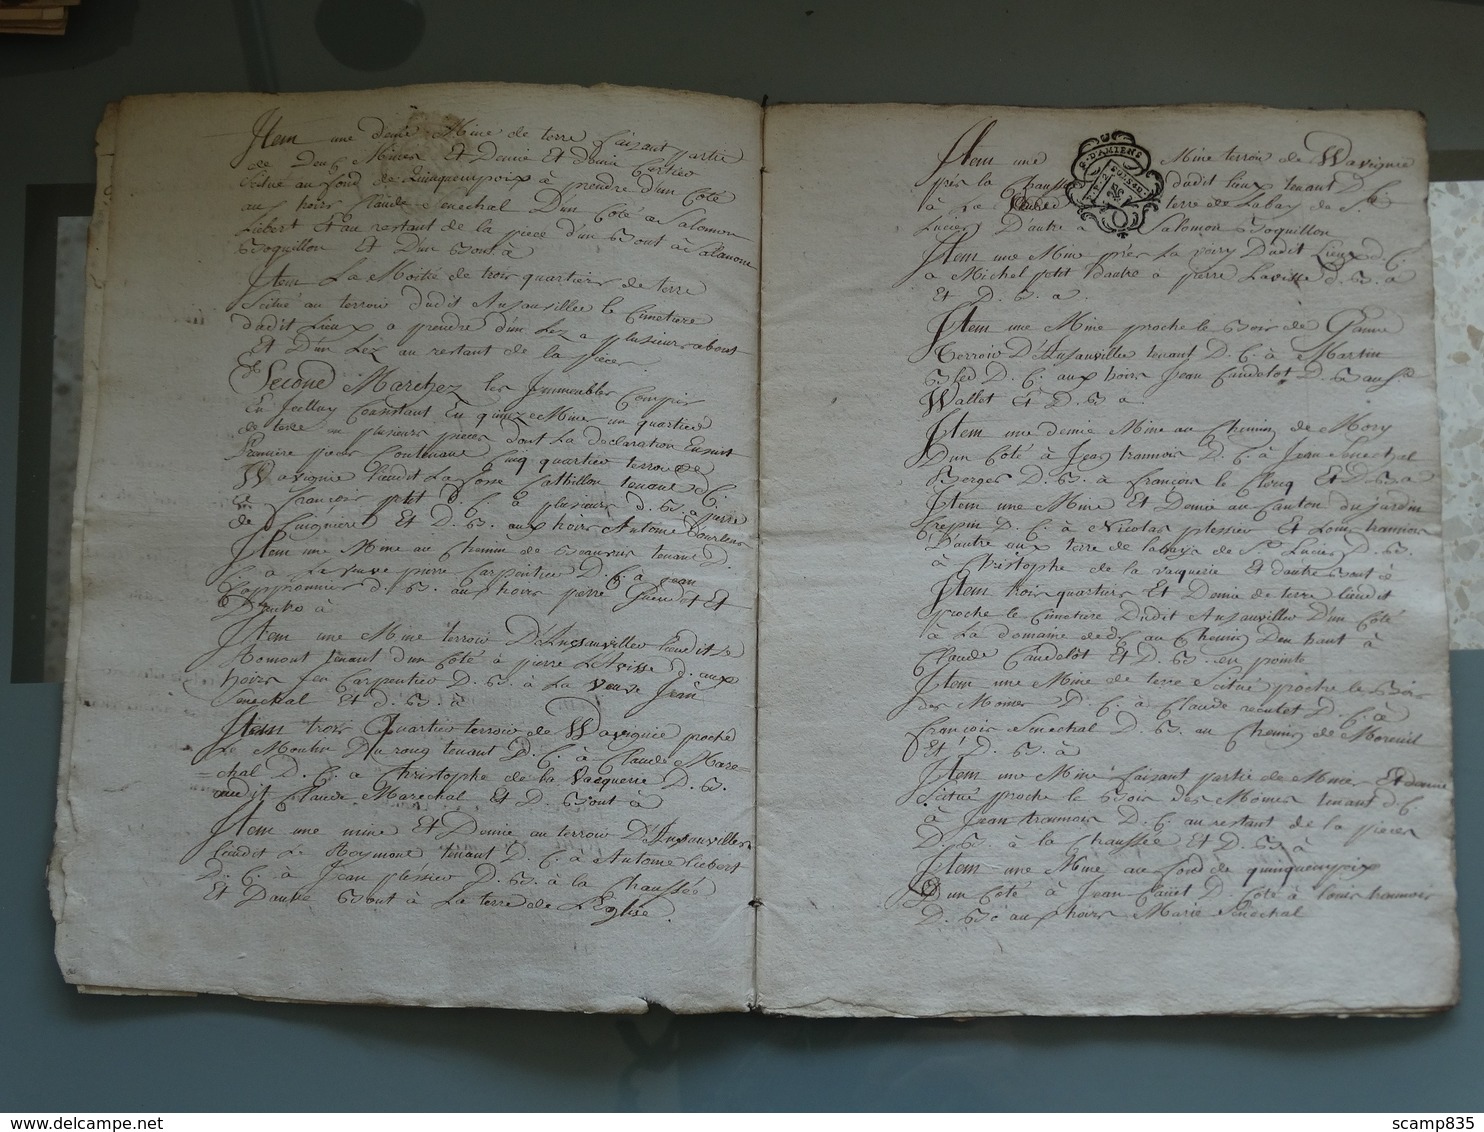 Item une demie Mine de terre faisant partie
de Deux Mines Et Demie Et demie Cartier
Scitué au fond de Quinquempoix à prendre d'un Coté
aux hoirs Claude Senechal D'un Coté a Salomon
Liebert Et au restant de la piece d'un Bout à Salomon
Boquillon Et D'un Bout à
Item La Moitié de trois quartiers de terre
Scitué au terroir dudit Ansauviller le Cimetiere
dudit Lieux a prendre d'un Lez a plusieurs about
Et D'un Lez au restant de la piece
Second Marchez les Immeubles Compris
En Icelluy Consistant En quinze Mines un quartier
de terre en plusieurs pieces dont La declaration Ensuit
Premiere piece Contenant Cinq quartier terroir de
Wavignie lieudit La fosse Cathillon tenant d. C.
à François petit d. C. à plusieurs d. B. a pierre
de Luignière Et D. B. aux hoirs Antoine
Item une Mine au Chemin de Beauvais tenant D.
C. a La veuve pierre Carpentier D. C. à Jean
d. B. aux hoirs pierre Et
D'autre à
Item une Mine terroir D'Ansauviller lieudit Le
Bomont tenant d'un Coté à pierre Lavisse d. aux
hoirs Carpentier D. B. à La veuve Jean
Senechal Et d. B. à
Item trois Quartier terroir de Wavignie proche
Le Moulin Du rouq tenant D. C. à Claude Mare-
=chal D. C. a Christophe de la Vacquerie D. B.
audit Claude Marechal Et D. Bout à
Item une mine Et Demie au terroir D'Ansauviller
lieudit Le Boymont tenant D. C. à Antoine Liebert
D. C. à Jean plessier D. B. à la Chaussée
Et Dautre Bout à La terre de L'Eglise.
Item une Mine terroir de Wavignie
près la Chaussée dudit Lieux tenant D. C
à La terre de Labay de St
Lucien Dautre à Salomon Boquillon
G. D'AMIENS
Item une Mine près La voiry Dudit Lieux d. C.
a Michel petit Dautre à pierre Lavisse d. B. à
Et D. B. a.
Item une Mine proche le Bois de Gannes
terroir D'Ansauviller tenant D. C. à Martin
D. C. aux hoirs Jean Caudelot D. B.
Wallet Et D. B. a.
Item une demie Mine au Chemin de Mory
D'un Coté à Jean trannois D. C. à Jean Senechal
Berger D. B. à François le Clercq Et D. B. a
Item une Mine Et Demie au Canton du jardin
Crepin D. C. à Nicolas plessier Et Louis trannois
D'autre aux terre de labaye de St Lucien D. B.
à Christophe de la vacquerie Et dautre Bout à
Item trois quartiers Et Demie de terre lieudit
proche le Cimetière Dudit Ansauviller D'un Coté
à La domaine de au Chemin D'en haut à
Claude Caudelot Et D. B. en pointe
Item une Mine de terre Scitué proche le Bois
des Momes D. C. à Claude reculet D. C. à
François Senechal D. B. au Chemin de Moreuil
Et D. B. à
Item une Mine faisant partie de Mines Et demie
Scitué proche le Bois des Momes tenant d. C
à Jean trannois D. C. au restant de la pieces
D. B. à la Chaussée Et D. B. à
Item une Mine au fond de quinquempoix
D'un Coté à Jean D. Coté à Louis tranmois
D. B. aux hoirs Marie Senechal
delcampe.net
scamp835